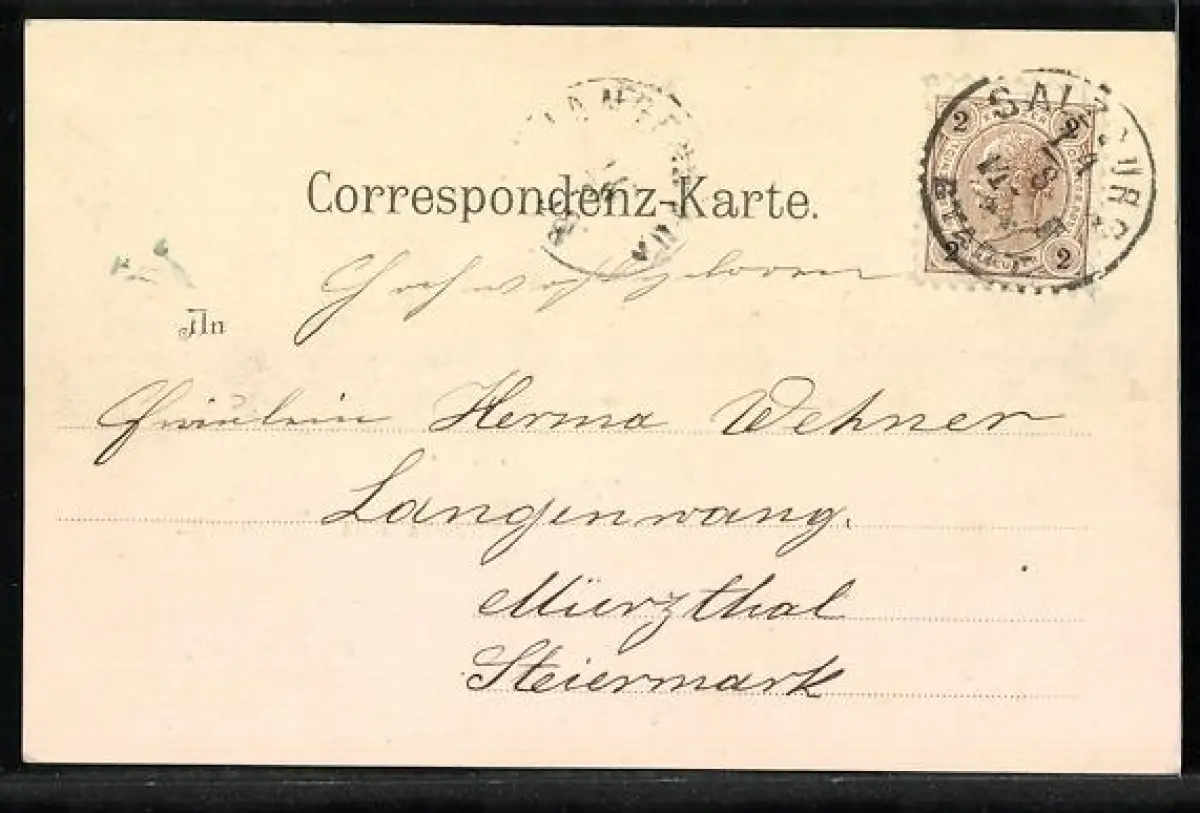 Correspondenz-Karte.
Hochwohlgeboren
An
Fräulein Herma Wehner
Langenwang.
Mürzthal
Steiermark
SALZBURG
STADT
2 2
2 2